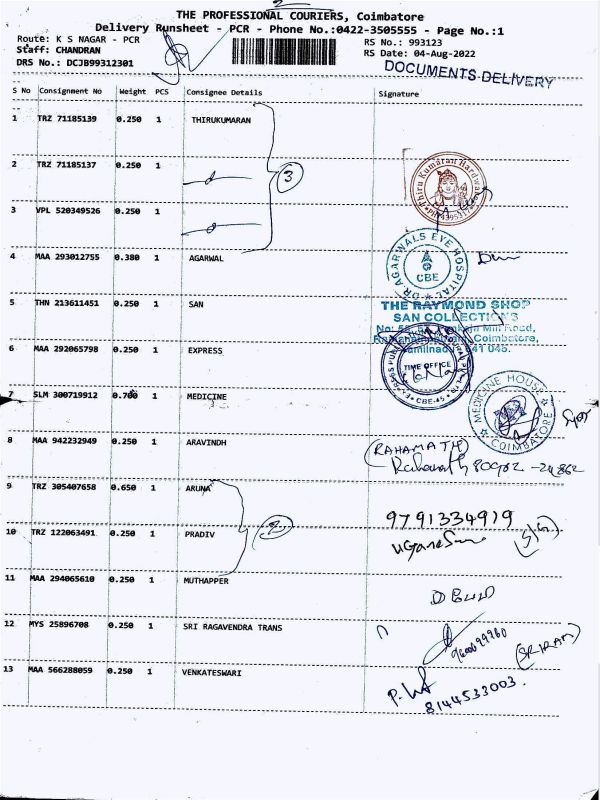 2
THE PROFESSIONAL COURIERS, Coimbatore
Delivery Runsheet - PCR - Phone No.:0422-3505555 - Page No.:1
Route: K S NAGAR - PCR RS No.: 993123
Staff: CHANDRAN RS Date: 04-Aug-2022
DRS No.: DCJB99312301
DOCUMENTS DELIVERY
S No Consignment No Weight PCS Consignee Details Signature
1 TRZ 71185139 0.250 1 THIRUKUMARAN
2 TRZ 71185137 0.250 1
3
Thiru Kumaran Hardware
3 VPL 520349526 0.250 1
4 MAA 293012755 0.380 1 AGARWAL
DR AGARWALS EYE HOSPITAL
CBE
5 THN 213611451 0.250 1 SAN
THE RAYMOND SHOP
SAN COLLECTIONS
Mill Road,
Coimbatore,
Tamilnadu 641 045.
6 MAA 292065798 0.250 1 EXPRESS
TIME OFFICE
CBE-45
7 SLM 300719912 0.700 1 MEDICINE
MEDICINE HOUSE
COIMBATORE
8 MAA 942232949 0.250 1 ARAVINDH
(RAHAMATH)
9 TRZ 305407658 0.650 1 ARUNA
2
9791334919
10 TRZ 122063491 0.250 1 PRADIV
11 MAA 294065610 0.250 1 MUTHAPPER
12 MYS 25896708 0.250 1 SRI RAGAVENDRA TRANS
(SRIRAM)
13 MAA 566288059 0.250 1 VENKATESWARI
8144533003.